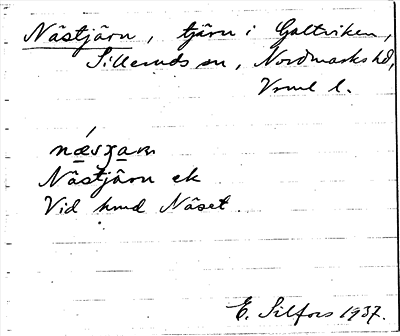 Nästjärn, tjärn i Galtviken,
Silleruds sn, Nordmarks hd,
Vrml l.
Nästjärn ek
Vid hmd Näset.
E. Silfors 1937.